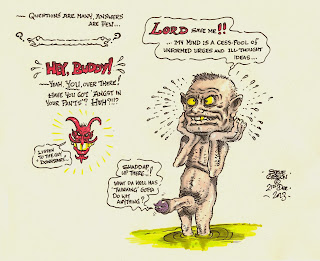 — QUESTIONS ARE MANY, ANSWERS
ARE FEW...
— HEY, BUDDY!
— YEAH, YOU, OVER THERE!
HAVE YOU GOT 'ANGST IN
YOUR PANTS'? HUH?!!?
LISTEN
TO THE GUY
DOWNSTAIRS...
LORD SAVE ME!!
... MY MIND IS A CESS-POOL OF
UNFORMED URGES AND ILL-THOUGHT
IDEAS...
SHADDAP
UP THERE..!!
WHAT DA HELL HAS
'THINKING' GOTTA
DO WIT'
ANYTHING?
STEVE
21st DEC
2013